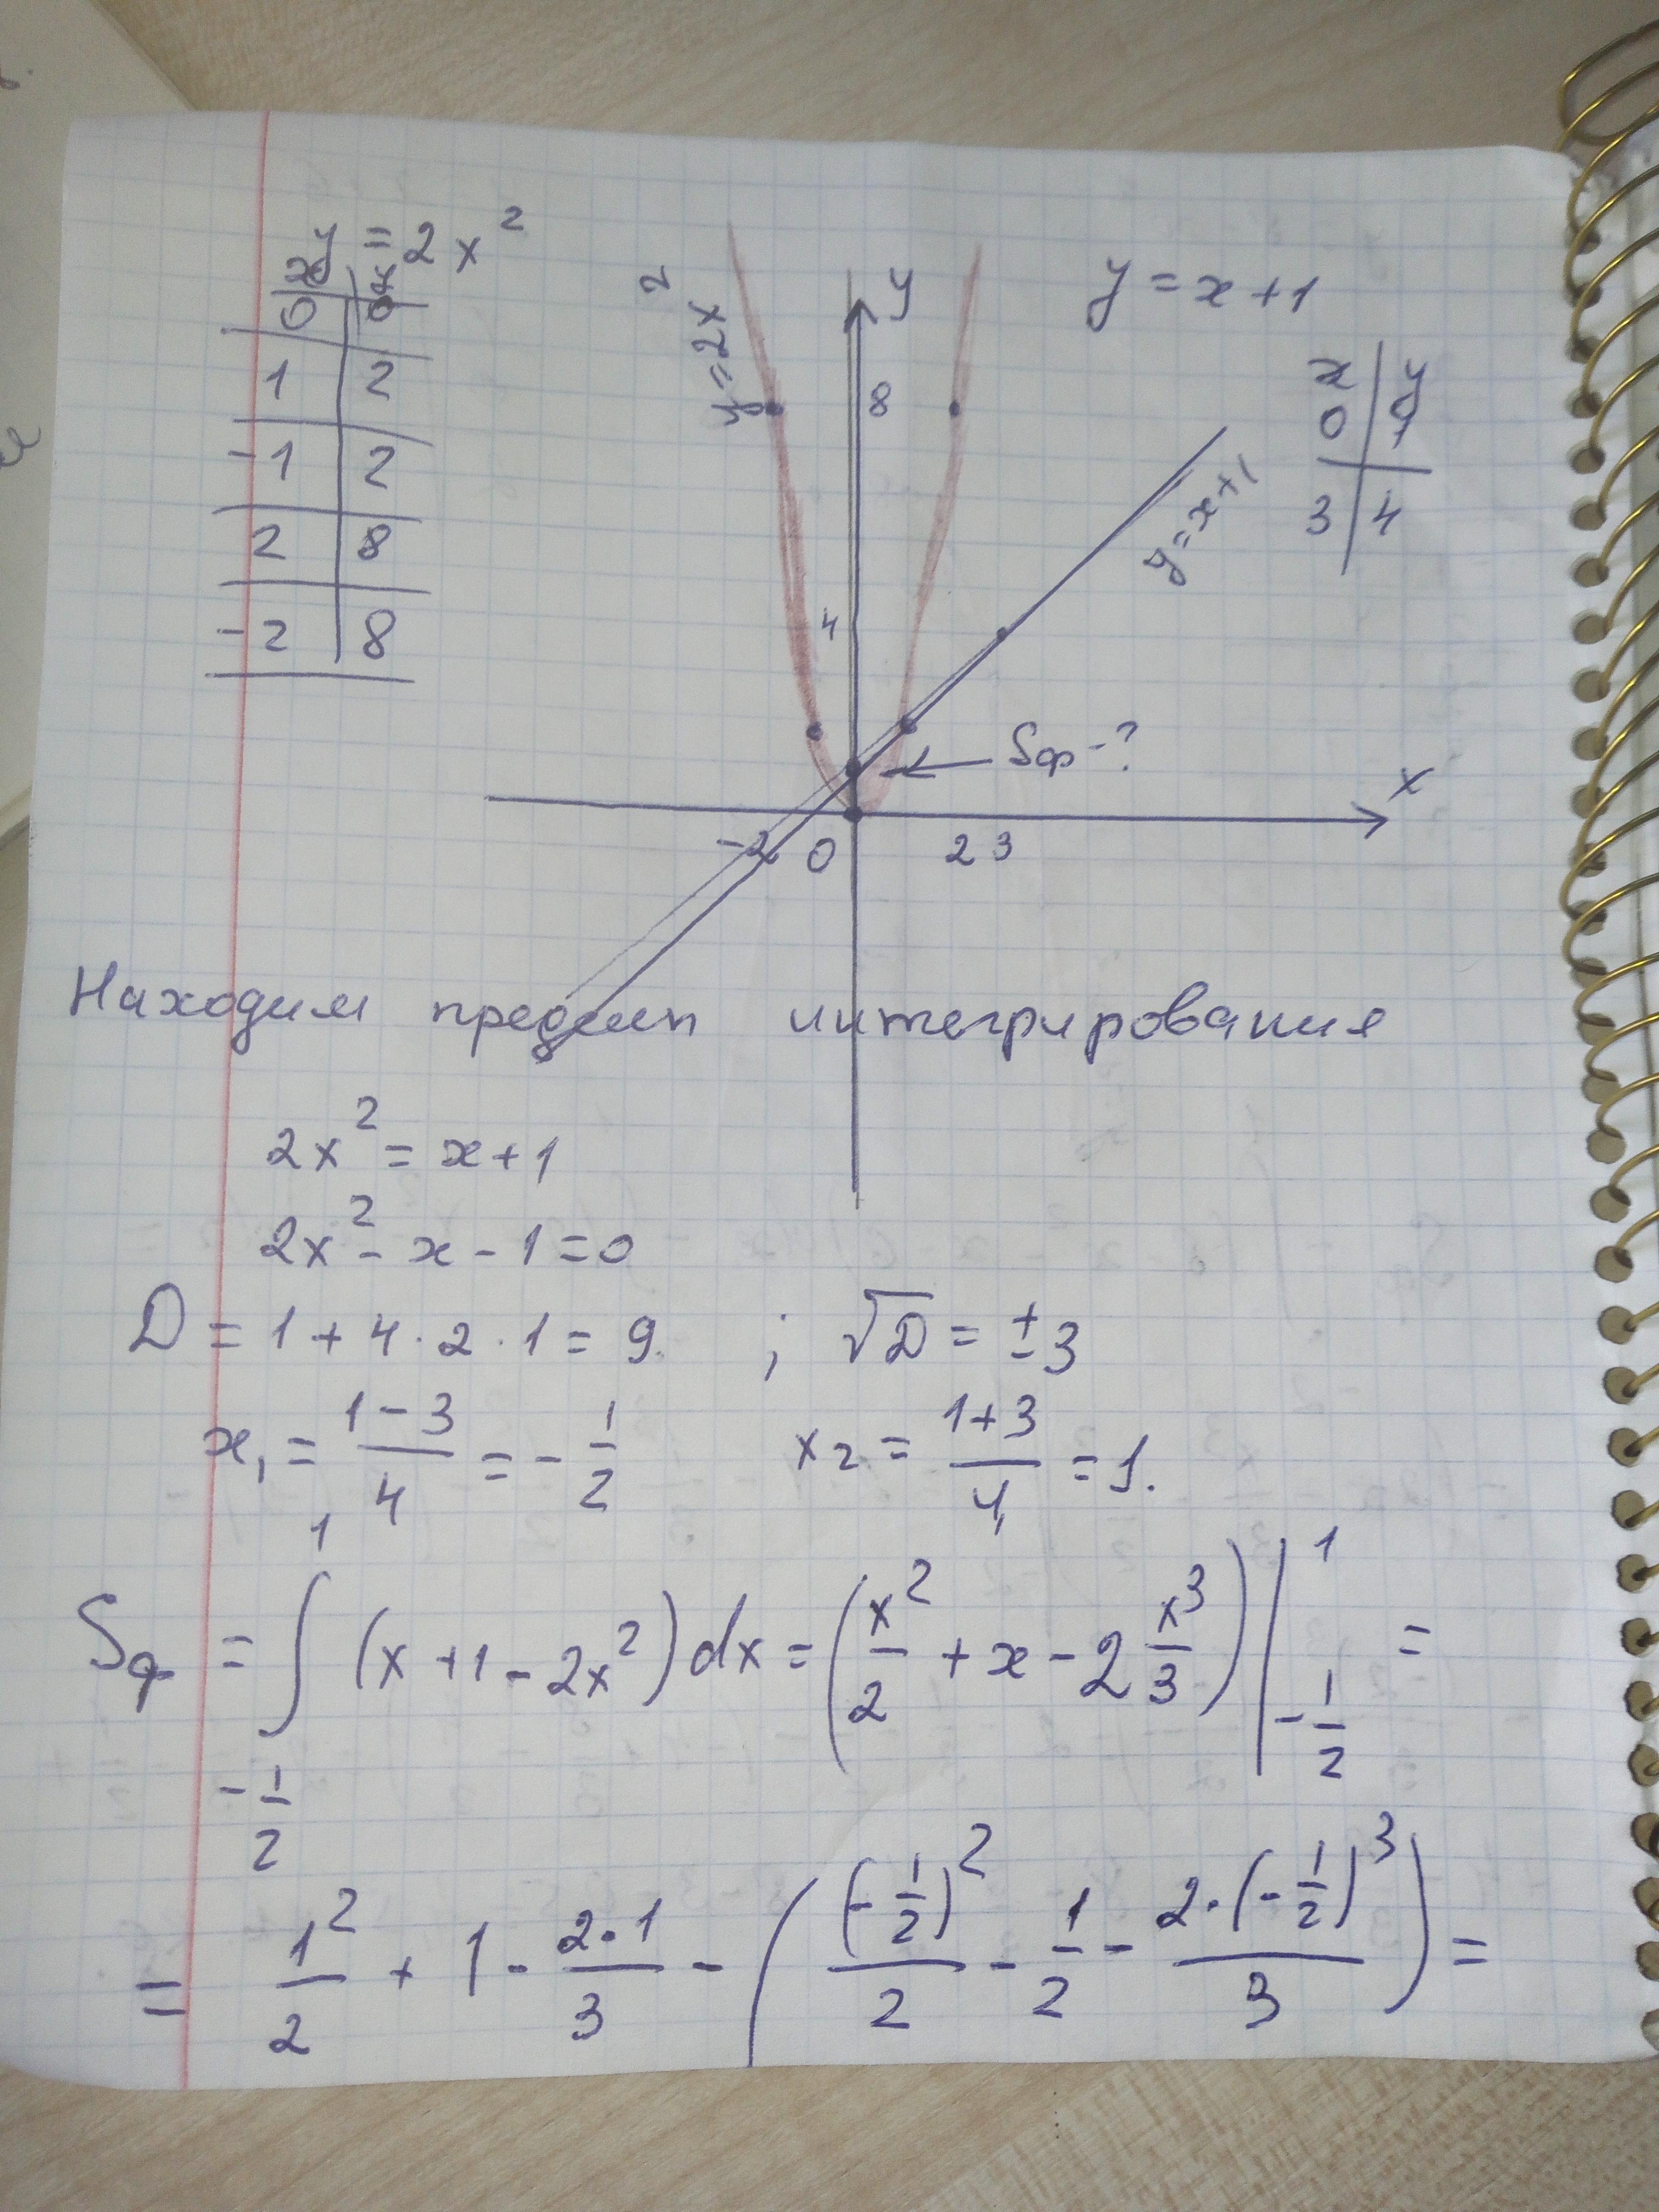 y = 2x²
x | y
0 | 0
1 | 2
-1 | 2
2 | 8
-2 | 8
y = 2x²
y
8
4
y = x + 1
x | y
0 | 1
3 | 4
y = x + 1
Sф - ?
x
-2 0 2 3
Находим пределы интегрирования
2x² = x + 1
2x² - x - 1 = 0
D = 1 + 4 · 2 · 1 = 9. ; √D = ± 3
x₁ = (1 - 3)/4 = - 1/2 x₂ = (1 + 3)/4 = 1.
Sф = ∫_{-1/2}^{1} (x + 1 - 2x²) dx = (x²/2 + x - 2 x³/3) |_{-1/2}^{1} =
= 1²/2 + 1 - (2·1)/3 - ((-1/2)²/2 - 1/2 - (2·(-1/2)³)/3) =